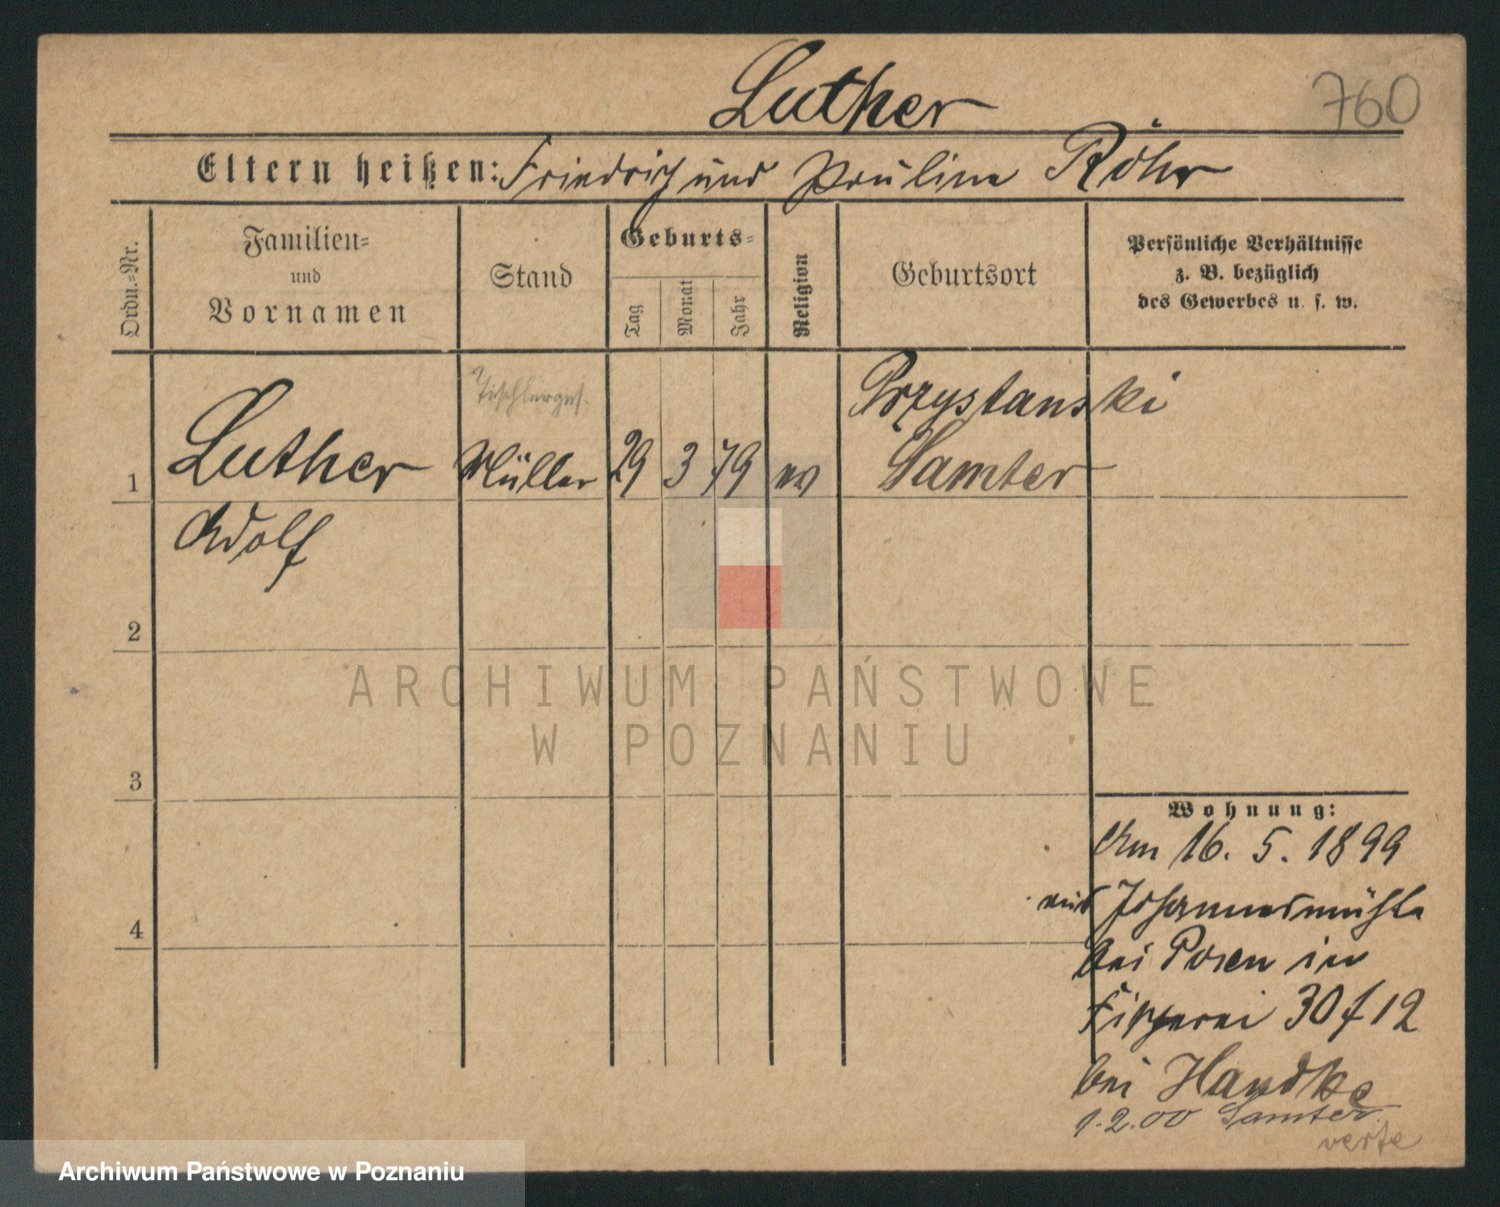 Luther
760
Eltern heißen: Friedrich und Pauline Röhr
Ordn.-Nr.
Familien- und Vornamen
Stand
Geburts-
Tag
Monat
Jahr
Religion
Geburtsort
Persönliche Verhältnisse
z. B. bezüglich
des Gewerbes u. s. w.
Tischlerges.
Przystanski
1 Luther Müller 29 3 79 ev Samter
Adolf
2
3
4
Wohnung:
Am 16. 5. 1899
aus Johannesmühle
bei Posen in
Fischerei 30 f 12
bei Handke
1.2.00 Samter.
verte
ARCHIWUM PAŃSTWOWE
W POZNANIU
Archiwum Państwowe w Poznaniu